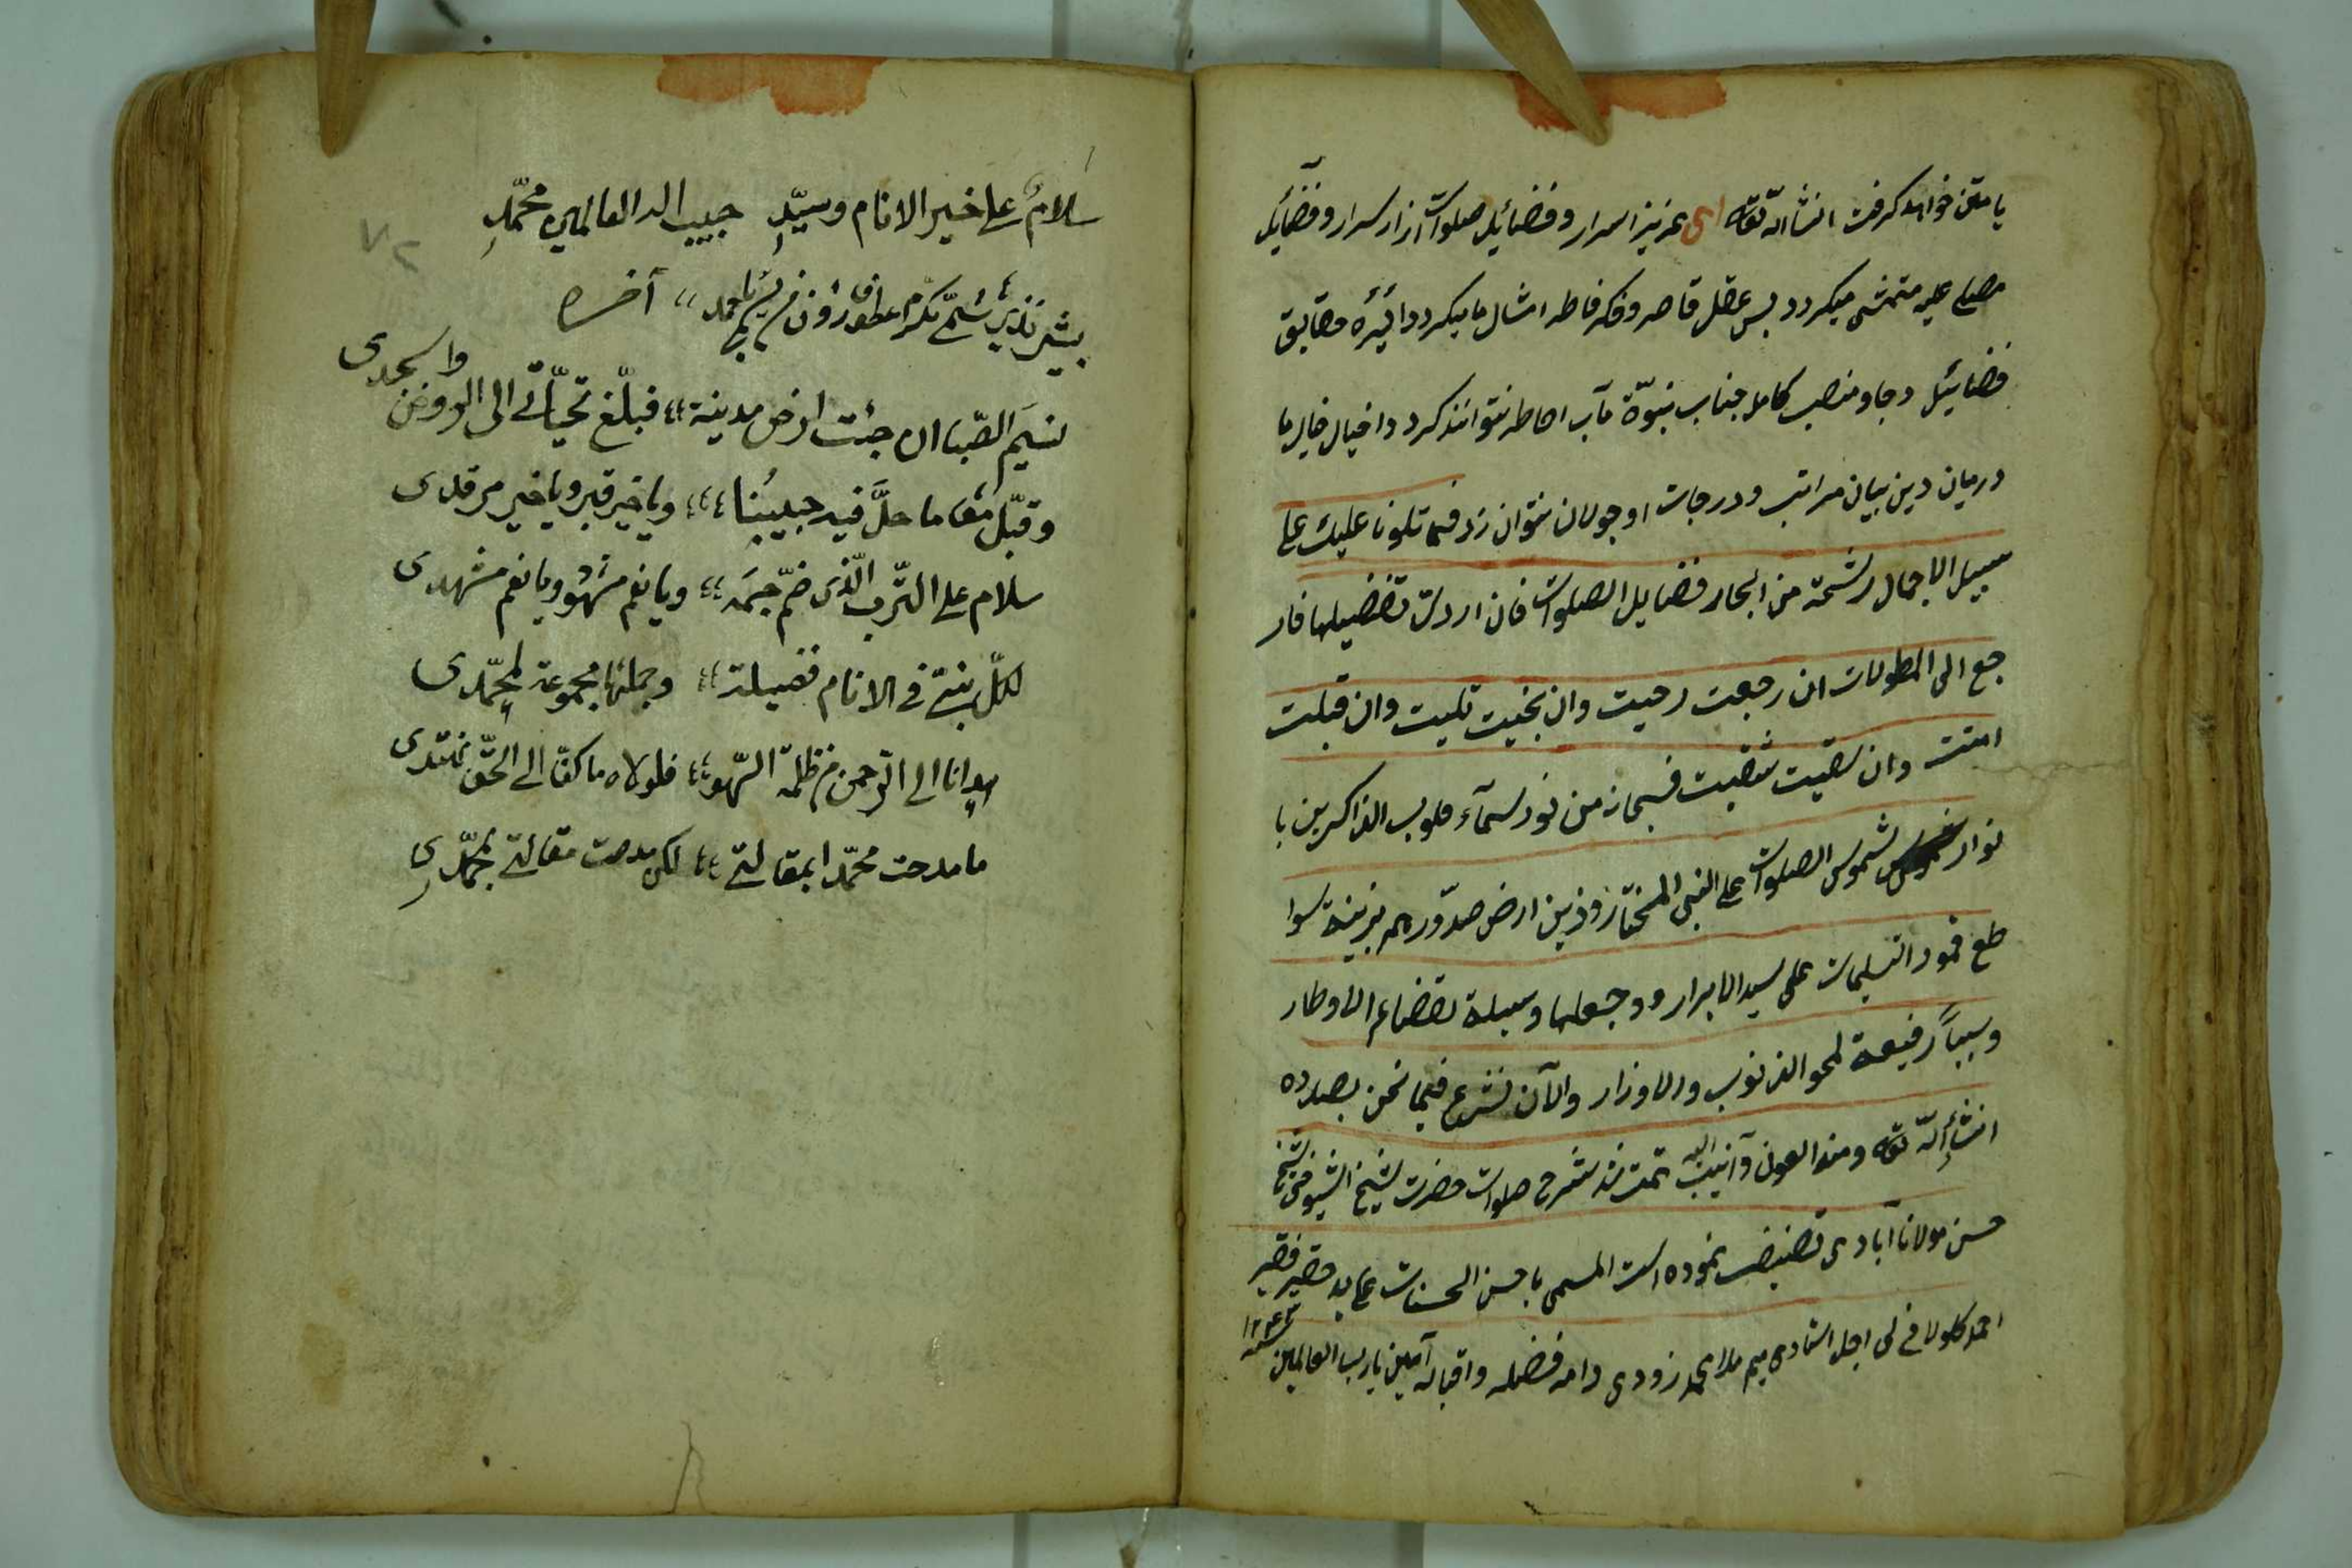 یا متن خواهد کرفت انشاالله تعالی ای عزیز اسرار و فضائیل صلوات از اسرار و فضائیل
صلی علیه متمشی میکردد پس عقل قاصر و فکر فاطر امثال ما میکردد دائیره حقایق
فضائیل و جاه و منصب کامله جناب نبوّة مآب احاطه نتوانند کرد و اخیال خالی ما
در میان دین بیان مراتب و درجات او جولان نتوان زد فما تلونا علیك علی
سبیل الاجمال رشحة من ابحار فضایل الصلوات فان اردت تفضیلها فار
جع الی المطولات ان رجعت رحیت وان نجیت تلیت وان قبلت
امنت وان شقیت فسبحان من نور سمآء قلوب الذاکرین با
نوار شموس الصلوات علی النبی المختار وزین ارض صدورهم بزینة سوا
طع قمود التسلیمات علی سید الابرار وجعلها وسیلة لقضاء الاوطار
وسبباً رفیعة لمحو الذنوب والاوزار والآن نشرع فیما نحن بصدده
انشاالله تعالی ومنه العون وانیب الیه تمت شد شرح صلوات حضرت شیخ الشیوخ شیخ
حسن مولانا آبادی تصنیف نموده است المسمی باحسن الحسنات علی ید حقیر فقیر
احمد کلولانی لی اجل استادی میم ملا محمد زودی دامه فضله واقباله آمین یا رب العالمین
سنه ١٢٤٣
٧٢
سلامٌ علی خیر الانام وسیّدٍ حبیب اله العالمین محمّدٍ
بشیر نذیر مکرّم عطوف رؤف من یسمّی باحمد ،، آخره
نسیم الصّبا ان جئت ارض مدینة ،، فبلّغ تحیّاتی الی الروض واسجدی
وقبّل مقاما حلَّ فیه حبیبُنا ،، ویا خیر قبر ویا خیر مرقدی
سلام علی التّرب الّذی ضمّ جسمَه ،، ویا نعم مشهد ویا نعم مشهدی
لکلّ نبیّ فی الانام فضیلة ،، وجملتها مجموعة لمحمّدی
هدانا الی الرّحمن من ظلمة السّهو ،، فلولاه ما کنّا الی الحقّ نهتدی
ما مدحت محمّدا بمقالتی ،، لکن مدحت مقالتی بمحمّدی